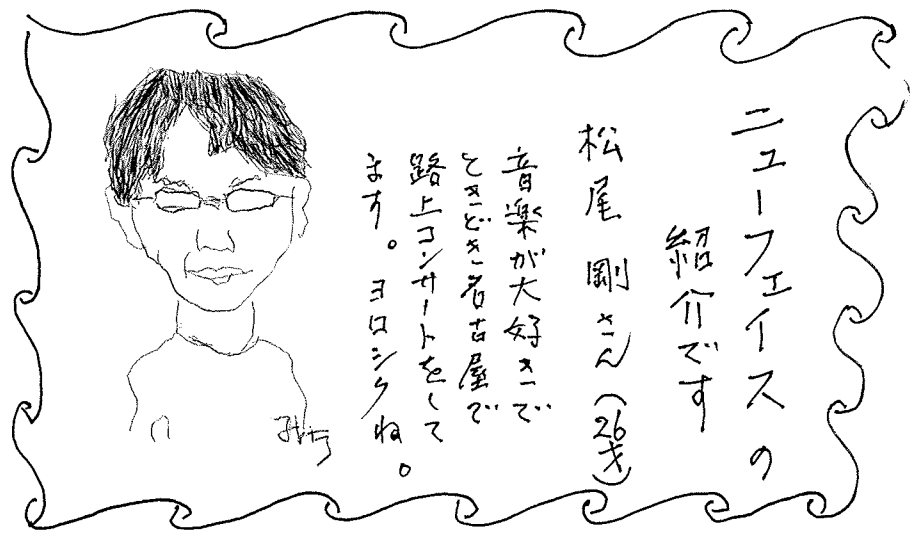 ニューフェイスの
紹介です
松尾 剛さん（26才）
音楽が大好きで
ときどき名古屋で
路上コンサートをして
ます。ヨロシクね。